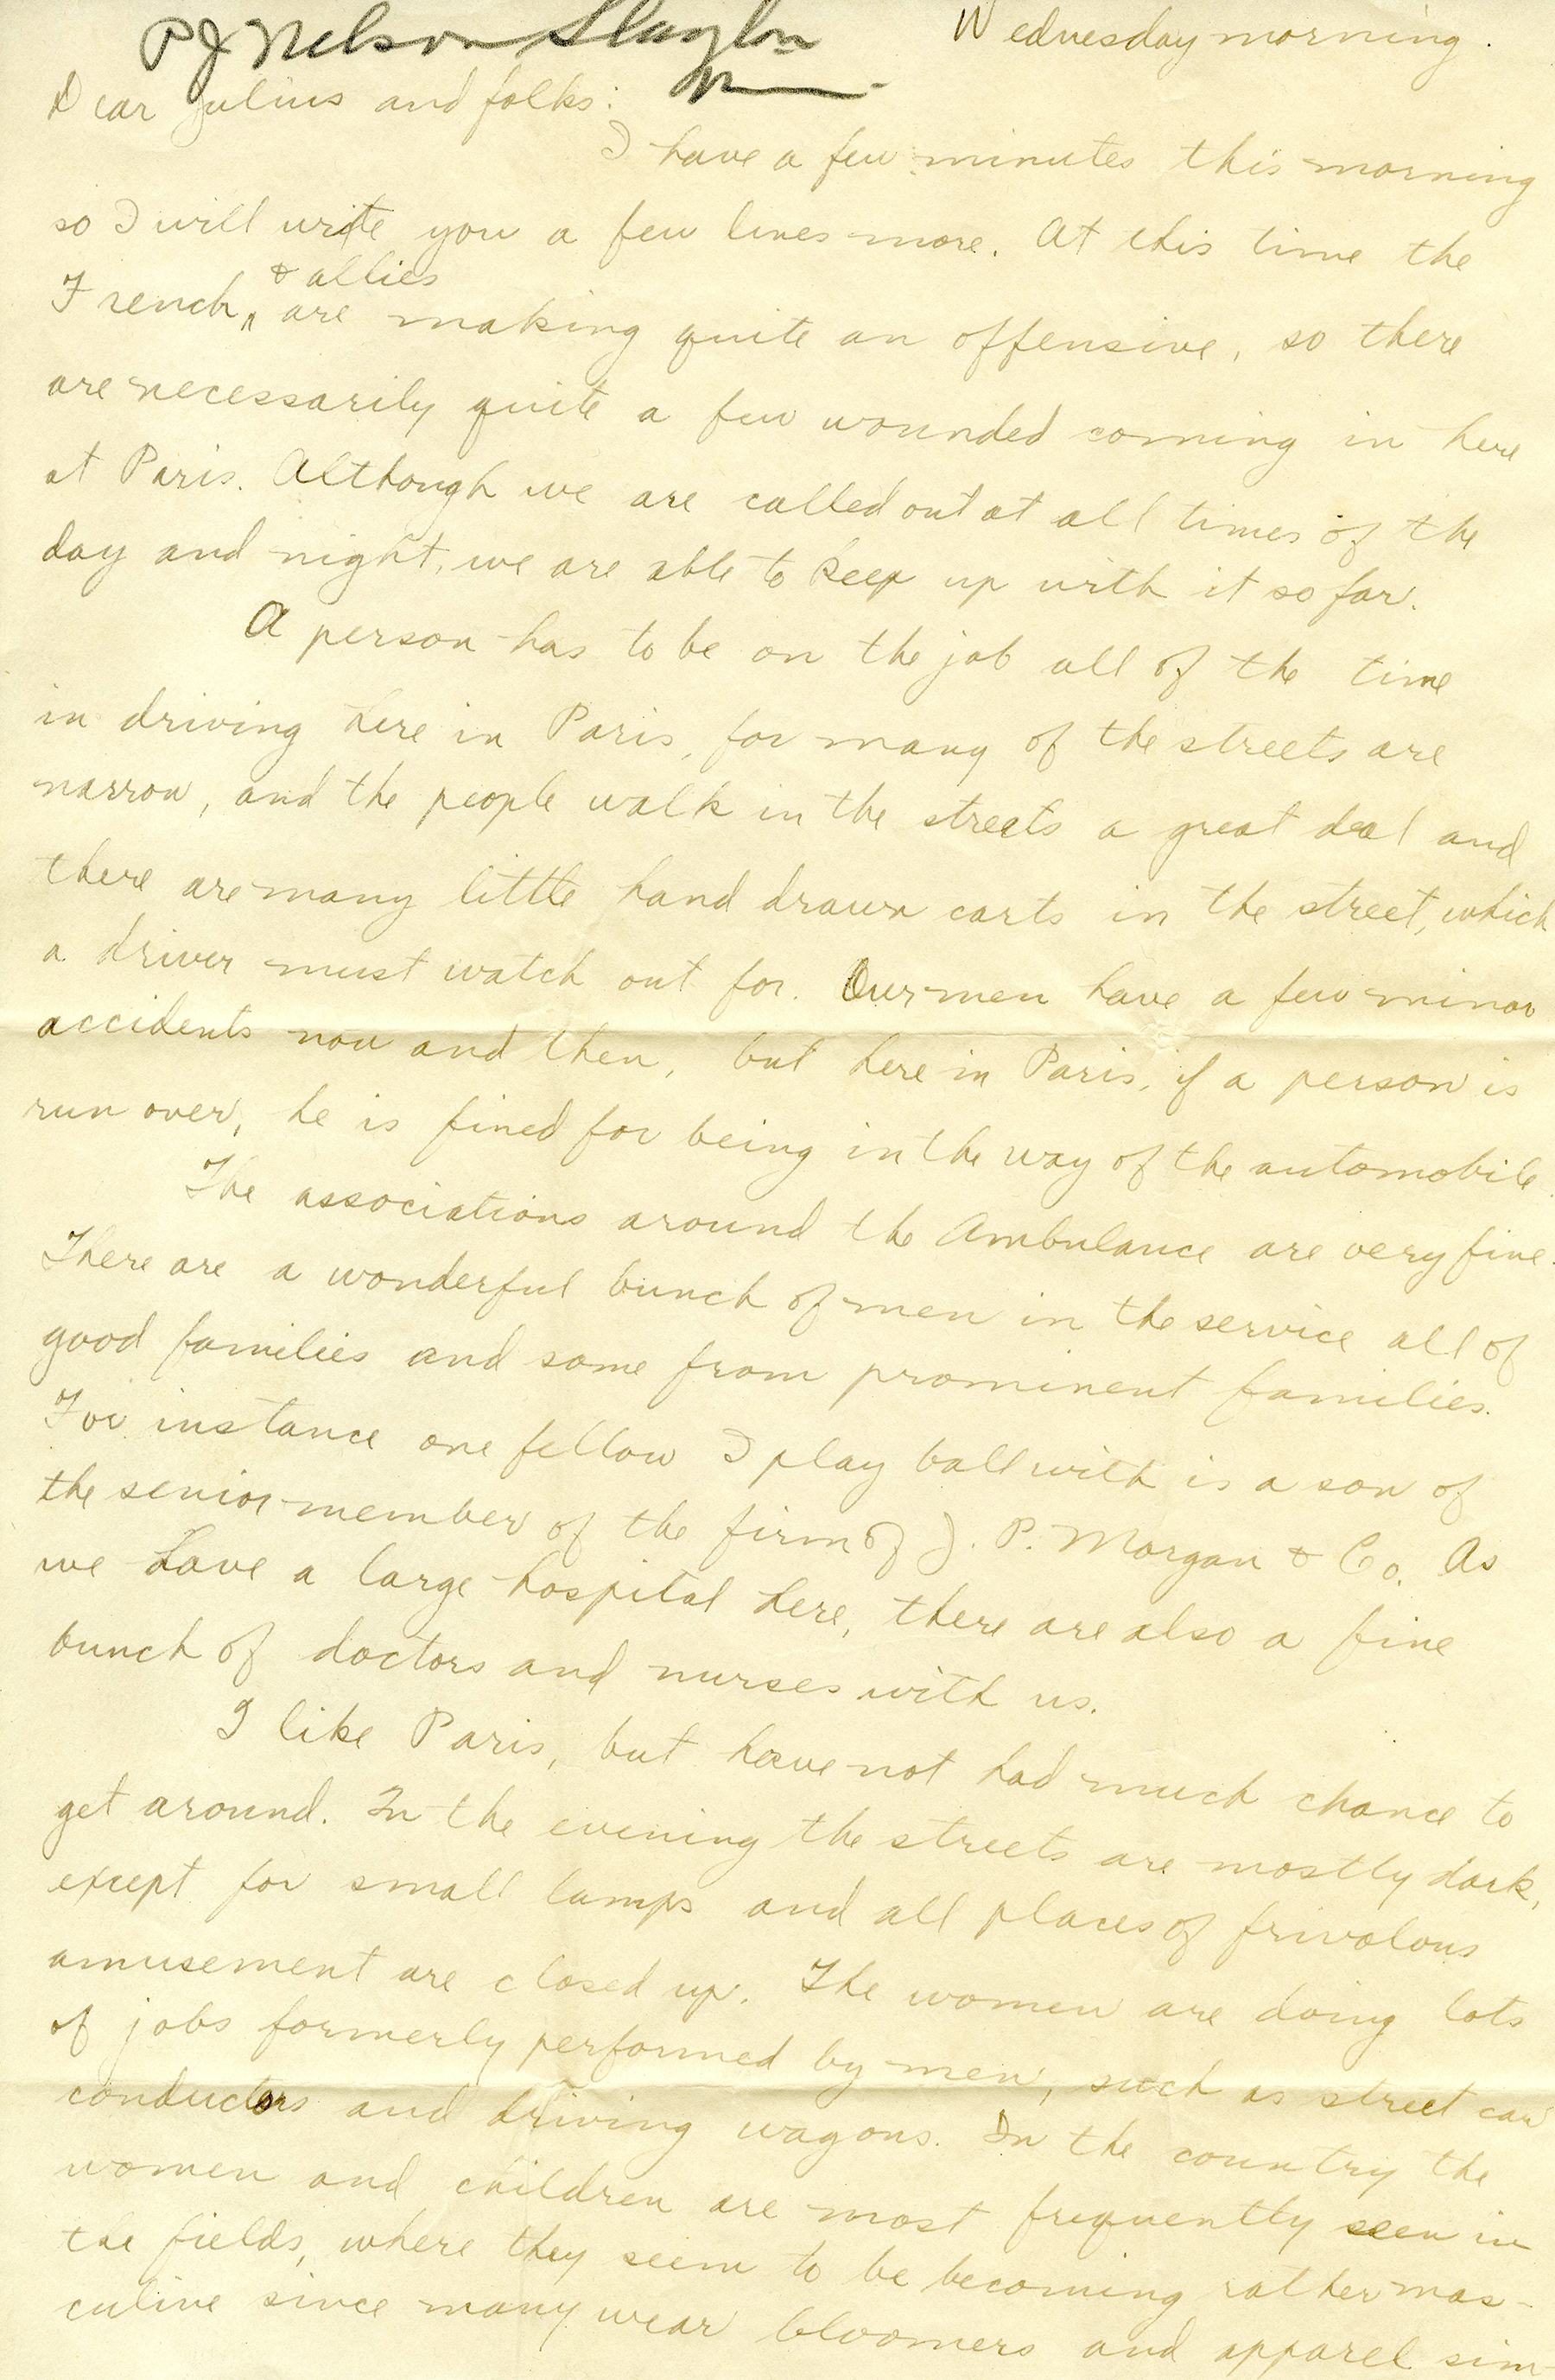 P J Nelson Slayton
Minn
Wednesday morning.
Dear Julius and folks:
I have a few minutes this morning
so I will write you a few lines more. At this time the
French, & allies are making quite an offensive, so there
are necessarily quite a few wounded coming in here
at Paris. Although we are called out at all times of the
day and night, we are able to keep up with it so far.
A person has to be on the job all of the time
in driving here in Paris, for many of the streets are
narrow, and the people walk in the streets a great deal and
there are many little hand drawn carts in the street, which
a driver must watch out for. Our men have a few minor
accidents now and then, but here in Paris, if a person is
run over, he is fined for being in the way of the automobile.
The associations around the Ambulance are very fine.
There are a wonderful bunch of men in the service all of
good families and some from prominent families.
For instance one fellow I play ball with is a son of
the senior member of the firm of J. P. Morgan & Co. As
we have a large hospital here, there are also a fine
bunch of doctors and nurses with us.
I like Paris, but have not had much chance to
get around. In the evening the streets are mostly dark,
except for small lamps and all places of frivolous
amusement are closed up. The women are doing lots
of jobs formerly performed by men, such as street car
conductors and driving wagons. In the country the
women and children are most frequently seen in
the fields, where they seem to be becoming rather mas-
culine since many wear bloomers and apparel sim-